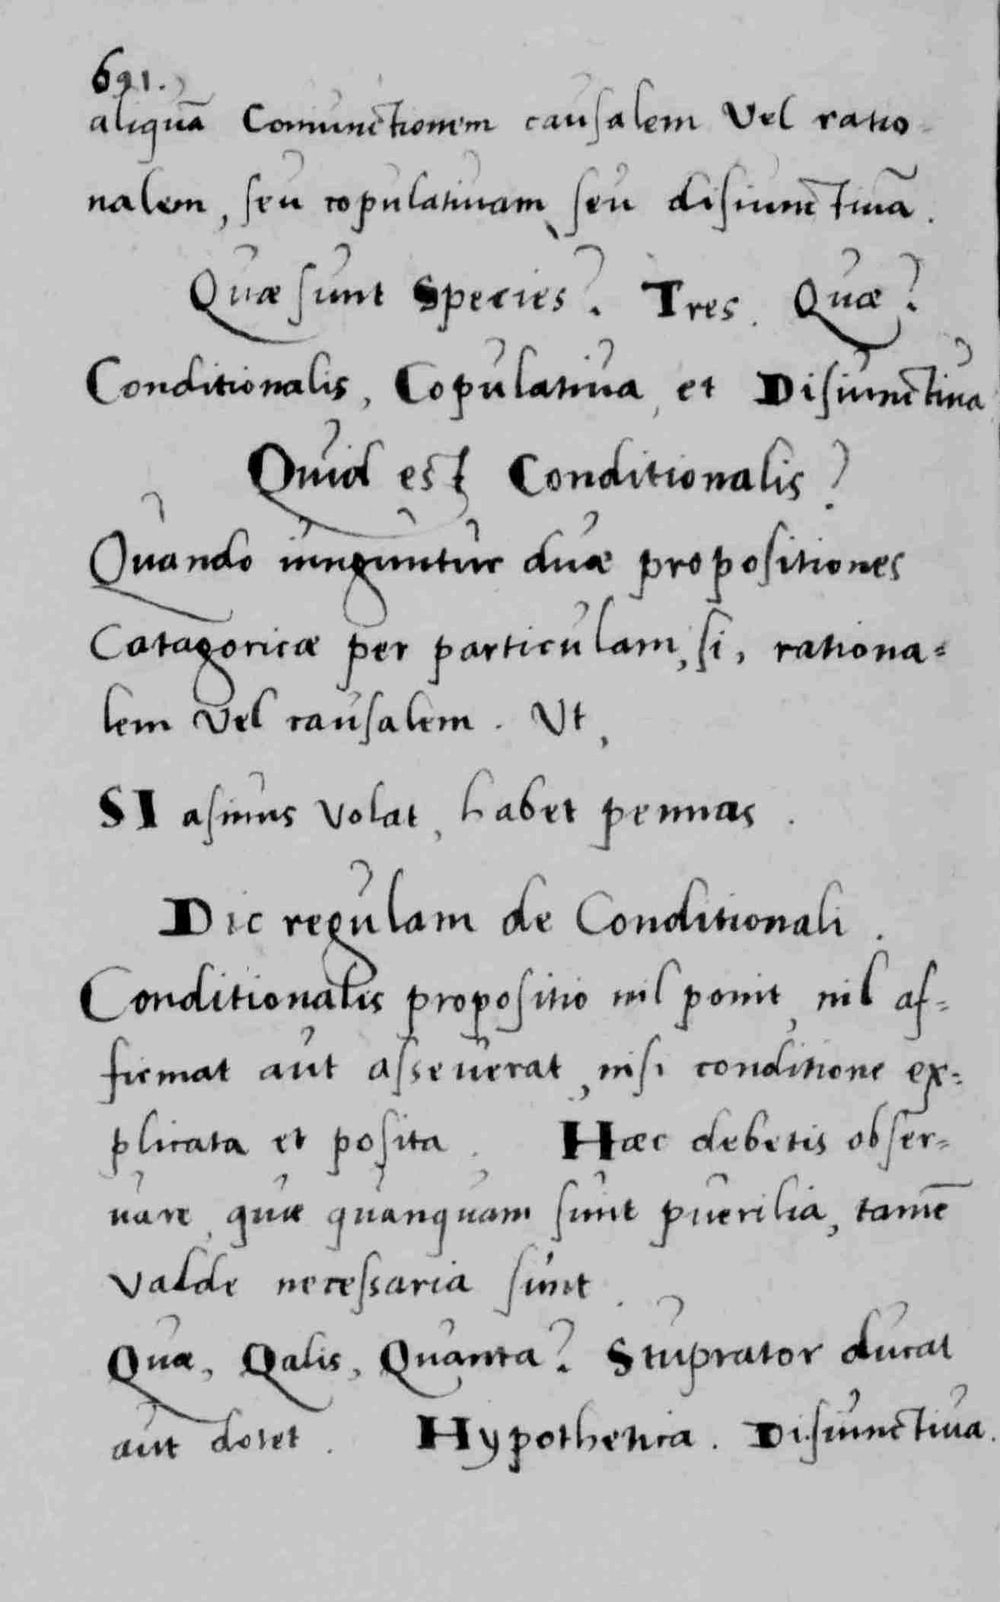 691.
aliquā Coniunctionem causalem Vel ratio
nalem, seu copulatiuam, seu disiunctiuā.
Quæ sunt Species? Tres. Quæ?
Conditionalis, Copulatiua, et Disiunctiua
Quid est Conditionalis?
Quando iunguntur duæ propositiones
Catagoricæ per particulam, si, rationa=
lem vel causalem. Vt,
SI asinus volat, habet pennas.
Dic regulam de Conditionali.
Conditionalis propositio nil ponit, nil af=
firmat aut asseuerat, nisi conditione ex=
plicata et posita. Hæc debetis obser=
uare, quæ quanquam sunt puerilia, tamē
valde necessaria sunt.
Quæ, Qalis, Quanta? Stuprator ducat
aut dotet. Hypothetica. Disiunctiua.